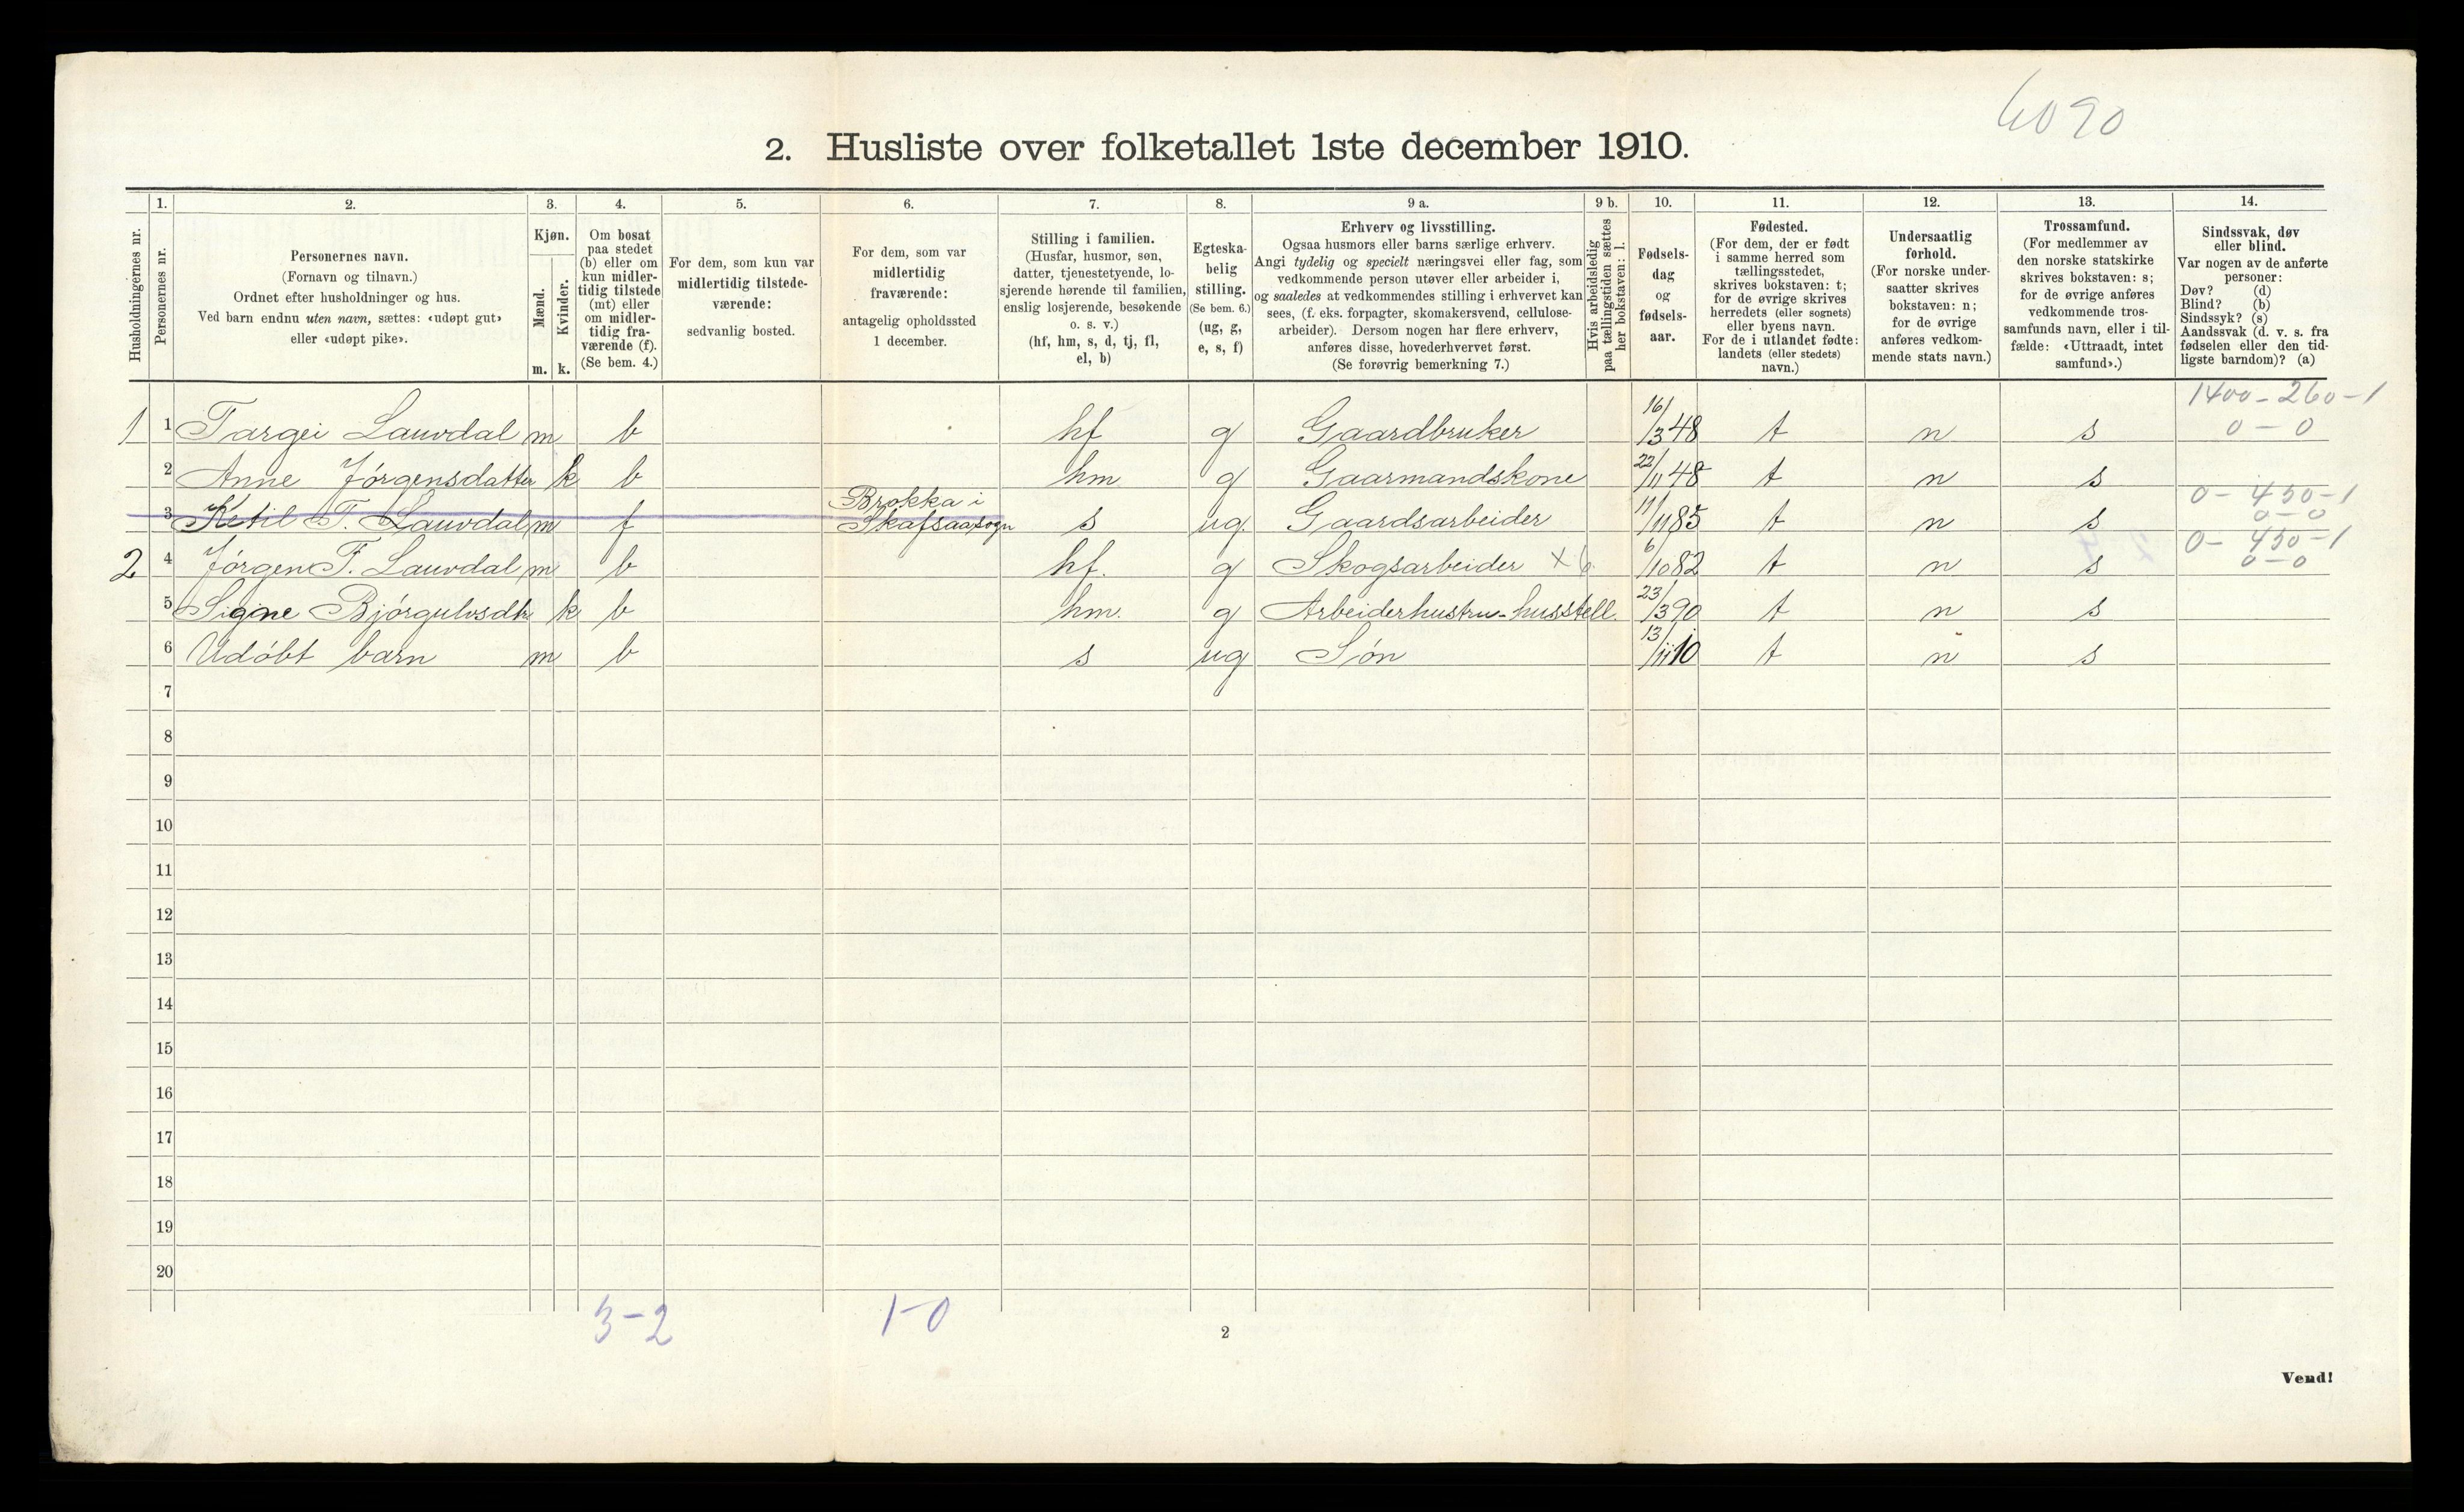 6090
2. Husliste over folketallet 1ste december 1910.
Husholdningernes nr.
1.
Personernes nr.
2.
Personernes navn.
(Fornavn og tilnavn.)
Ordnet efter husholdninger og hus.
Ved barn endnu uten navn, sættes: «udøpt gut»
eller «udøpt pike».
3.
Kjøn.
Mænd.
Kvinder.
m. k.
4.
Om bosat
paa stedet
(b) eller om
kun midler-
tidig tilstede
(mt) eller
om midler-
tidig fra-
værende (f).
(Se bem. 4.)
5.
For dem, som kun var
midlertidig tilstede-
værende:
sedvanlig bosted.
6.
For dem, som var
midlertidig
fraværende:
antagelig opholdssted
1 december.
7.
Stilling i familien.
(Husfar, husmor, søn,
datter, tjenestetyende, lo-
sjerende hørende til familien,
enslig losjerende, besøkende
o. s. v.)
(hf, hm, s, d, tj, fl,
el, b)
8.
Egteska-
belig
stilling.
(Se bem. 6.)
(ug, g,
e, s, f)
9 a.
Erhverv og livsstilling.
Ogsaa husmors eller barns særlige erhverv.
Angi tydelig og specielt næringsvei eller fag, som
vedkommende person utøver eller arbeider i,
og saaledes at vedkommendes stilling i erhvervet kan
sees, (f. eks. forpagter, skomakersvend, cellulose-
arbeider). Dersom nogen har flere erhverv,
anføres disse, hovederhvervet først.
(Se forøvrig bemerkning 7.)
9 b.
Hvis arbeidsledig
paa tællingstiden sættes
her bokstaven: l.
10.
Fødsels-
dag
og
fødsels-
aar.
11.
Fødested.
(For dem, der er født
i samme herred som
tællingsstedet,
skrives bokstaven: t;
for de øvrige skrives
herredets (eller sognets)
eller byens navn.
For de i utlandet fødte:
landets (eller stedets)
navn.)
12.
Undersaatlig
forhold.
(For norske under-
saatter skrives
bokstaven: n;
for de øvrige
anføres vedkom-
mende stats navn.)
13.
Trossamfund.
(For medlemmer av
den norske statskirke
skrives bokstaven: s;
for de øvrige anføres
vedkommende tros-
samfunds navn, eller i til-
fælde: «Uttraadt, intet
samfund».)
14.
Sindssvak, døv
eller blind.
Var nogen av de anførte
personer:
Døv? (d)
Blind? (b)
Sindssyk? (s)
Aandssvak (d. v. s. fra
fødselen eller den tid-
ligste barndom)? (a)
1400-260-1
1 1 Targei Lauvdal m b hf g Gaardbruker 16/3 48 t n s 0-0
2 Anne Jørgensdatter k b hm g Gaarmandskone 22/11 48 t n s
Brokka i 0-450-1
3 Ketil T. Lauvdal m f Skafsaasogn s ug. Gaardsarbeider 11/11 85 t n s 0-0
0-450-1
2 4 Jørgen T. Lauvdal m b hf. g Skogsarbeider x 6 6/10 82 t n s 0-0
5 Signe Bjørgulvsdtr k b hm. g Arbeiderhustru-husstell. 23/3 90 t n s
6 Udøbt barn m b s ug Søn 13/11 10 t n s
7
8
9
10
11
12
13
14
15
16
17
18
19
20
3-2 1-0
2
Vend!